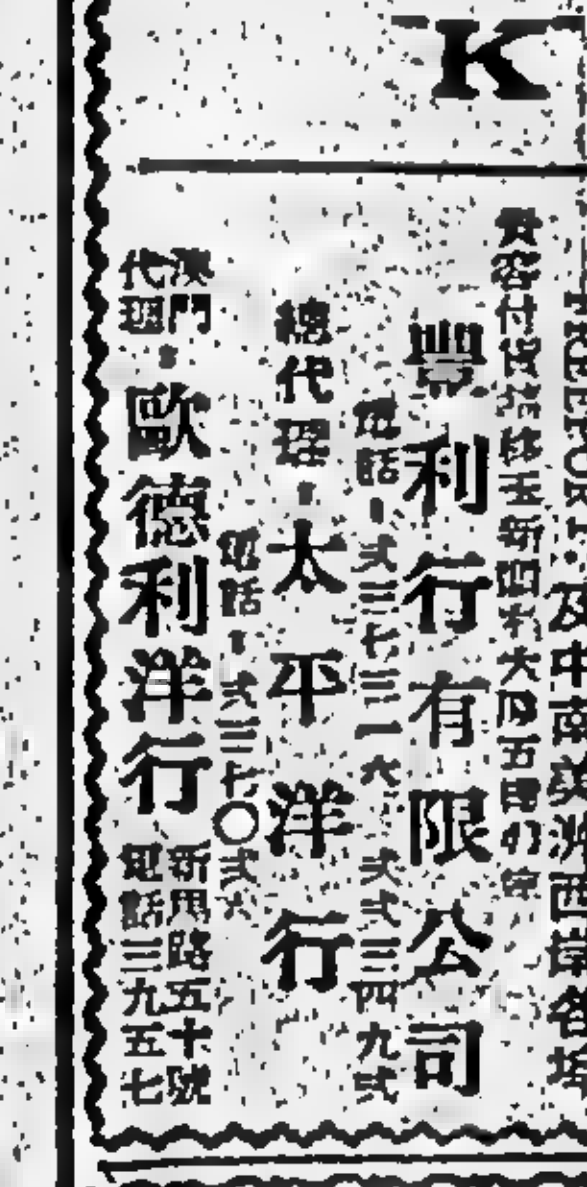 K
TREEPORT.及中南美洲西岸各埠
貴客付貨請移玉新四利大厦五樓
豐利行有限公司
電話－弍三七三一六 弍弍三四九弍
總代理－太平洋行
電話－弍三七〇弍六
澳門代理－歐德利洋行 新馬路五十號 電話三九五七